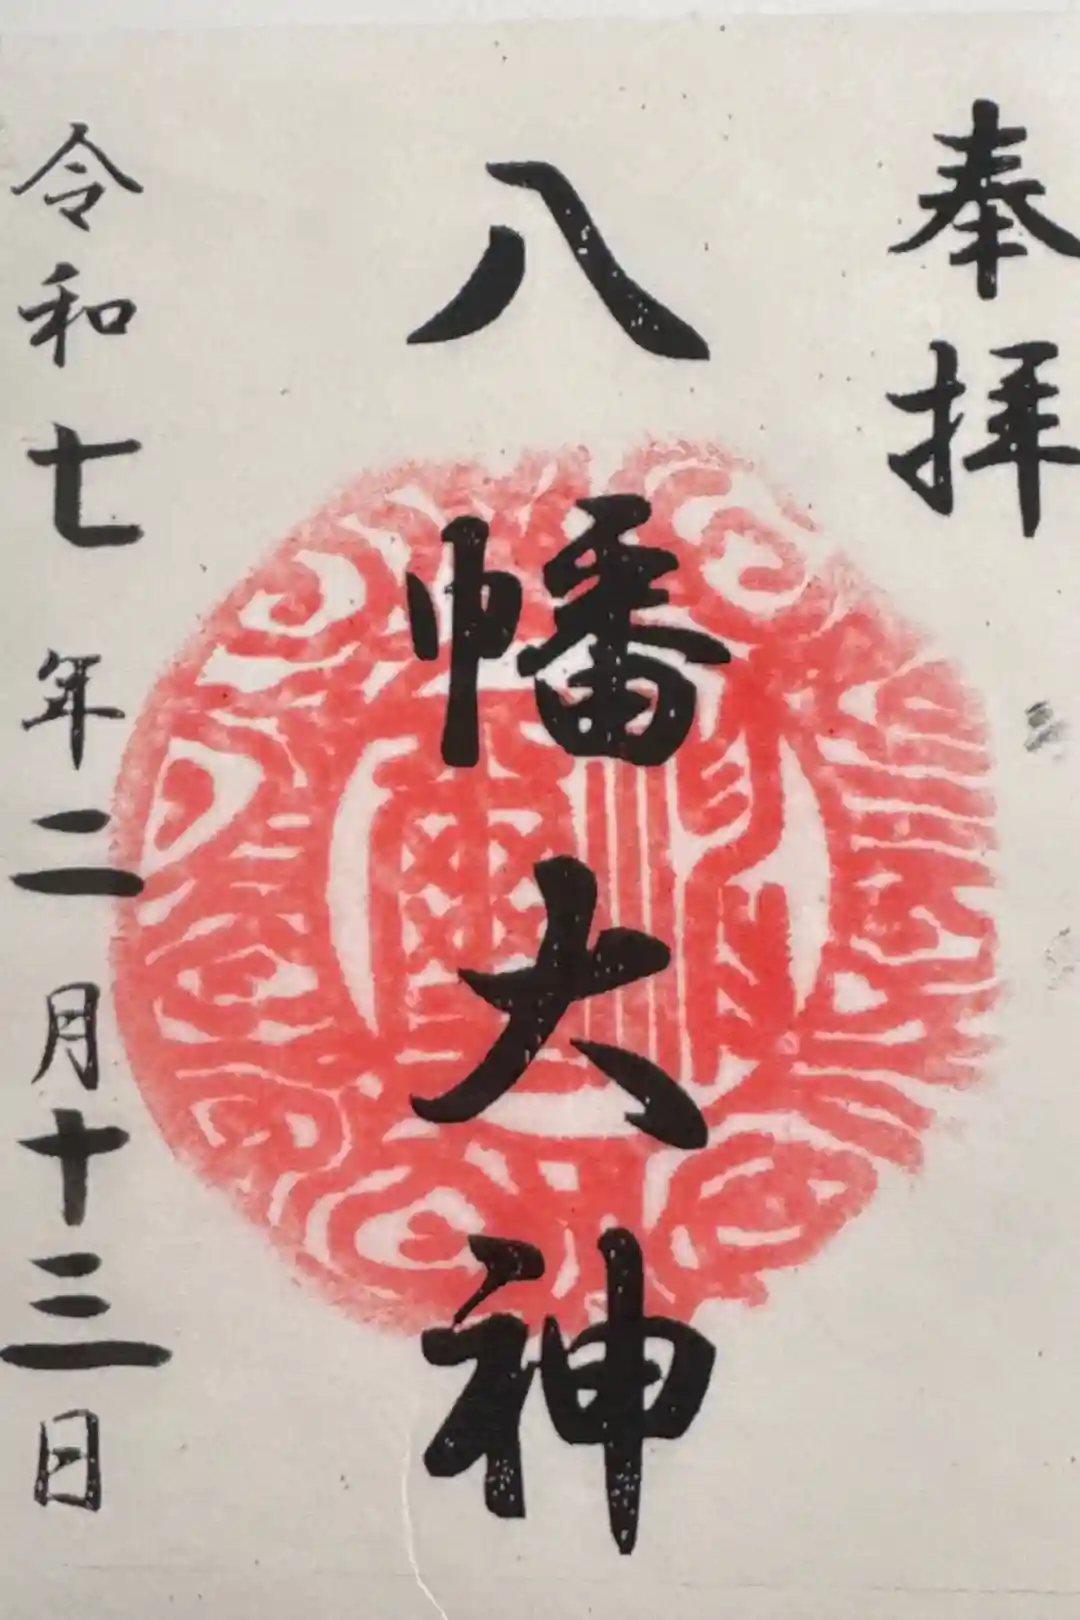 奉拝
八幡大神
令和七年二月十三日